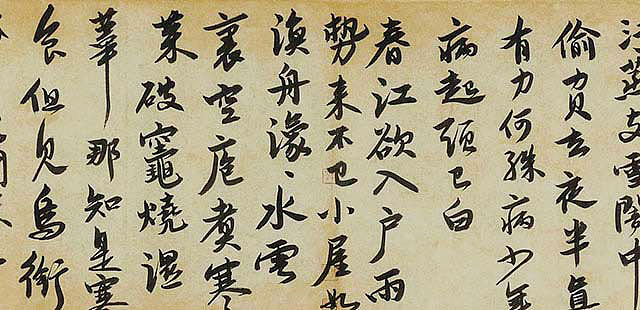 汙燕支雪闇中
偷負去夜半真
有力何殊病少年
病起頭已白
春江欲入戶雨
勢來不已小屋如
漁舟濛〻水雲
裏空庖煮寒
菜破竈燒濕
葦那知是寒
食但見烏銜